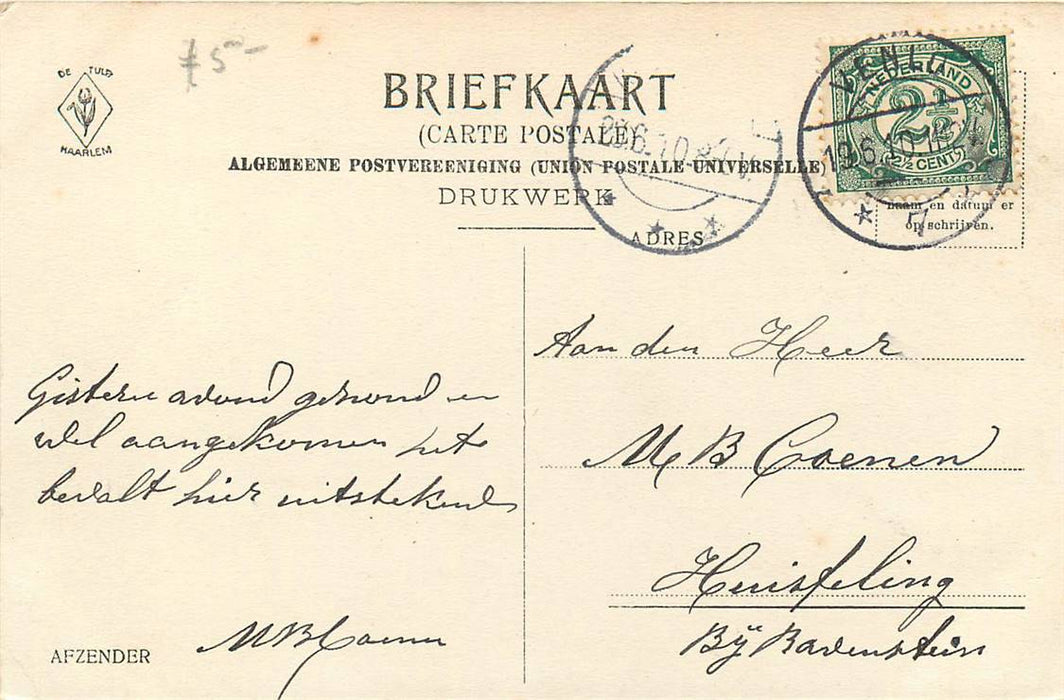 f 5-
DE TULP
HAARLEM
BRIEFKAART
(CARTE POSTALE)
ALGEMEENE POSTVEREENIGING (UNION POSTALE UNIVERSELLE)
DRUKWERK
ADRES
NEDERLAND
2½
2½ CENT
VENLO
19.6.10
20.6.10
naam en datum er
op schrijven.
Gisteren avond gezond en
wel aangekomen het
bevalt hier uitstekend
MBCoenen
AFZENDER
Aan den Heer
M B Coenen
Huisseling
Bij Ravenstein